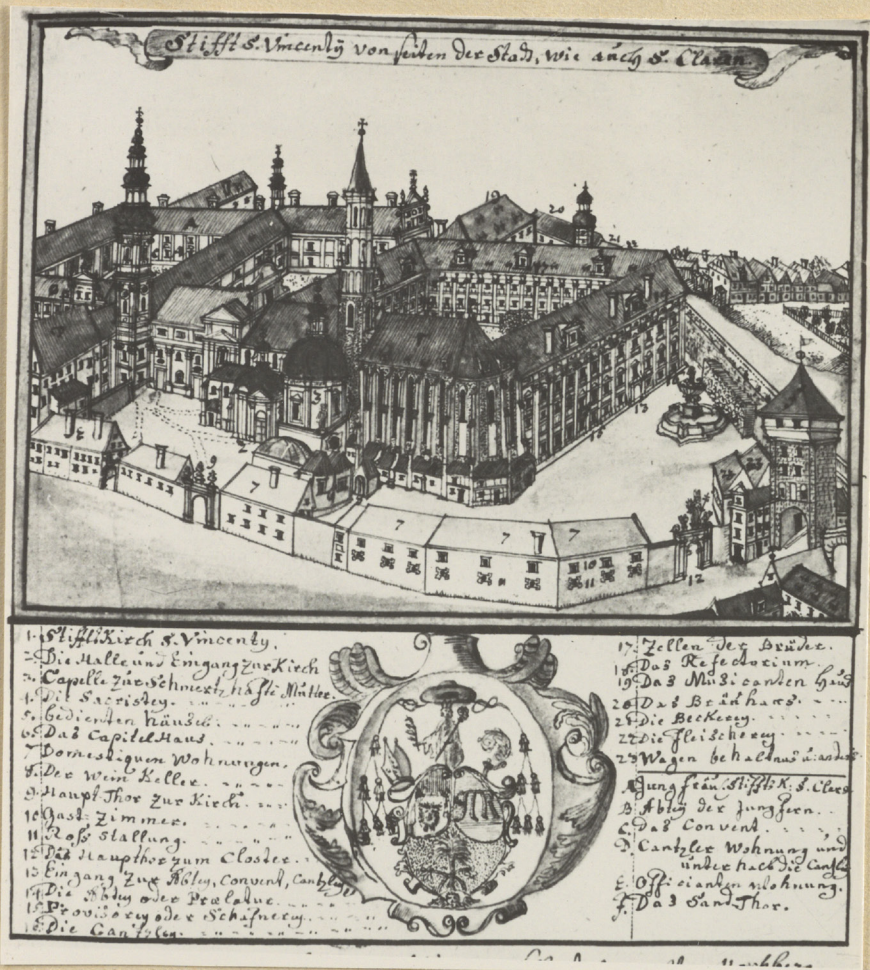 Stifft S. Vincentÿ von seiten der Stadt, wie auch S. Claren.
19
20
21
22
3
2
9
7
7
7
7
13
15
10
11
12
1. StifftsKirch S. Vincenty.
2. Die Halle und Eingang zur Kirch
3. Capelle zur Schmertzhafft: Mutter.
4. Die Sacristey.
5. bedienten häusel.
6. Das Capitel Haus.
7. Domestiquen Wohnungen.
8. Der Wein Keller.
9. Haupt Thor zur Kirch.
10. Gast Zimmer.
11. Ross Stallung.
12. Das Haupthor zum Closter.
13. Eingang zur Abtey, Convent, Cantzley
14. Die Abtey oder Prælatur.
15. Provisorey oder Schafnerey.
16. Die Cantzley.
17. Zellen der Brüder.
18. Das Refectorium.
19. Das Musicanten Haus
20. Das Bräuhaus.
21. Die Beckerey.
22. Die fleischerey
23. Wagen behaltnus u: anders
A. Jungfrau. Stiffts K: S. Clara
B. Abtey der Jungfern.
C. Das Convent.
D. Cantzler Wohnung und
unter halb die Cantzl
E. Officianten Wohnung.
F. Das Sand Thor.